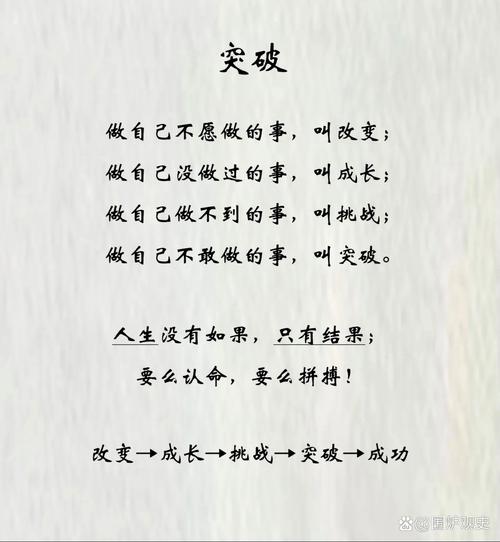 突破
做自己不愿做的事，叫改变；
做自己没做过的事，叫成长；
做自己做不到的事，叫挑战；
做自己不敢做的事，叫突破。
人生没有如果，只有结果；
要么认命，要么拼搏！
改变→成长→挑战→突破→成功
围炉观史